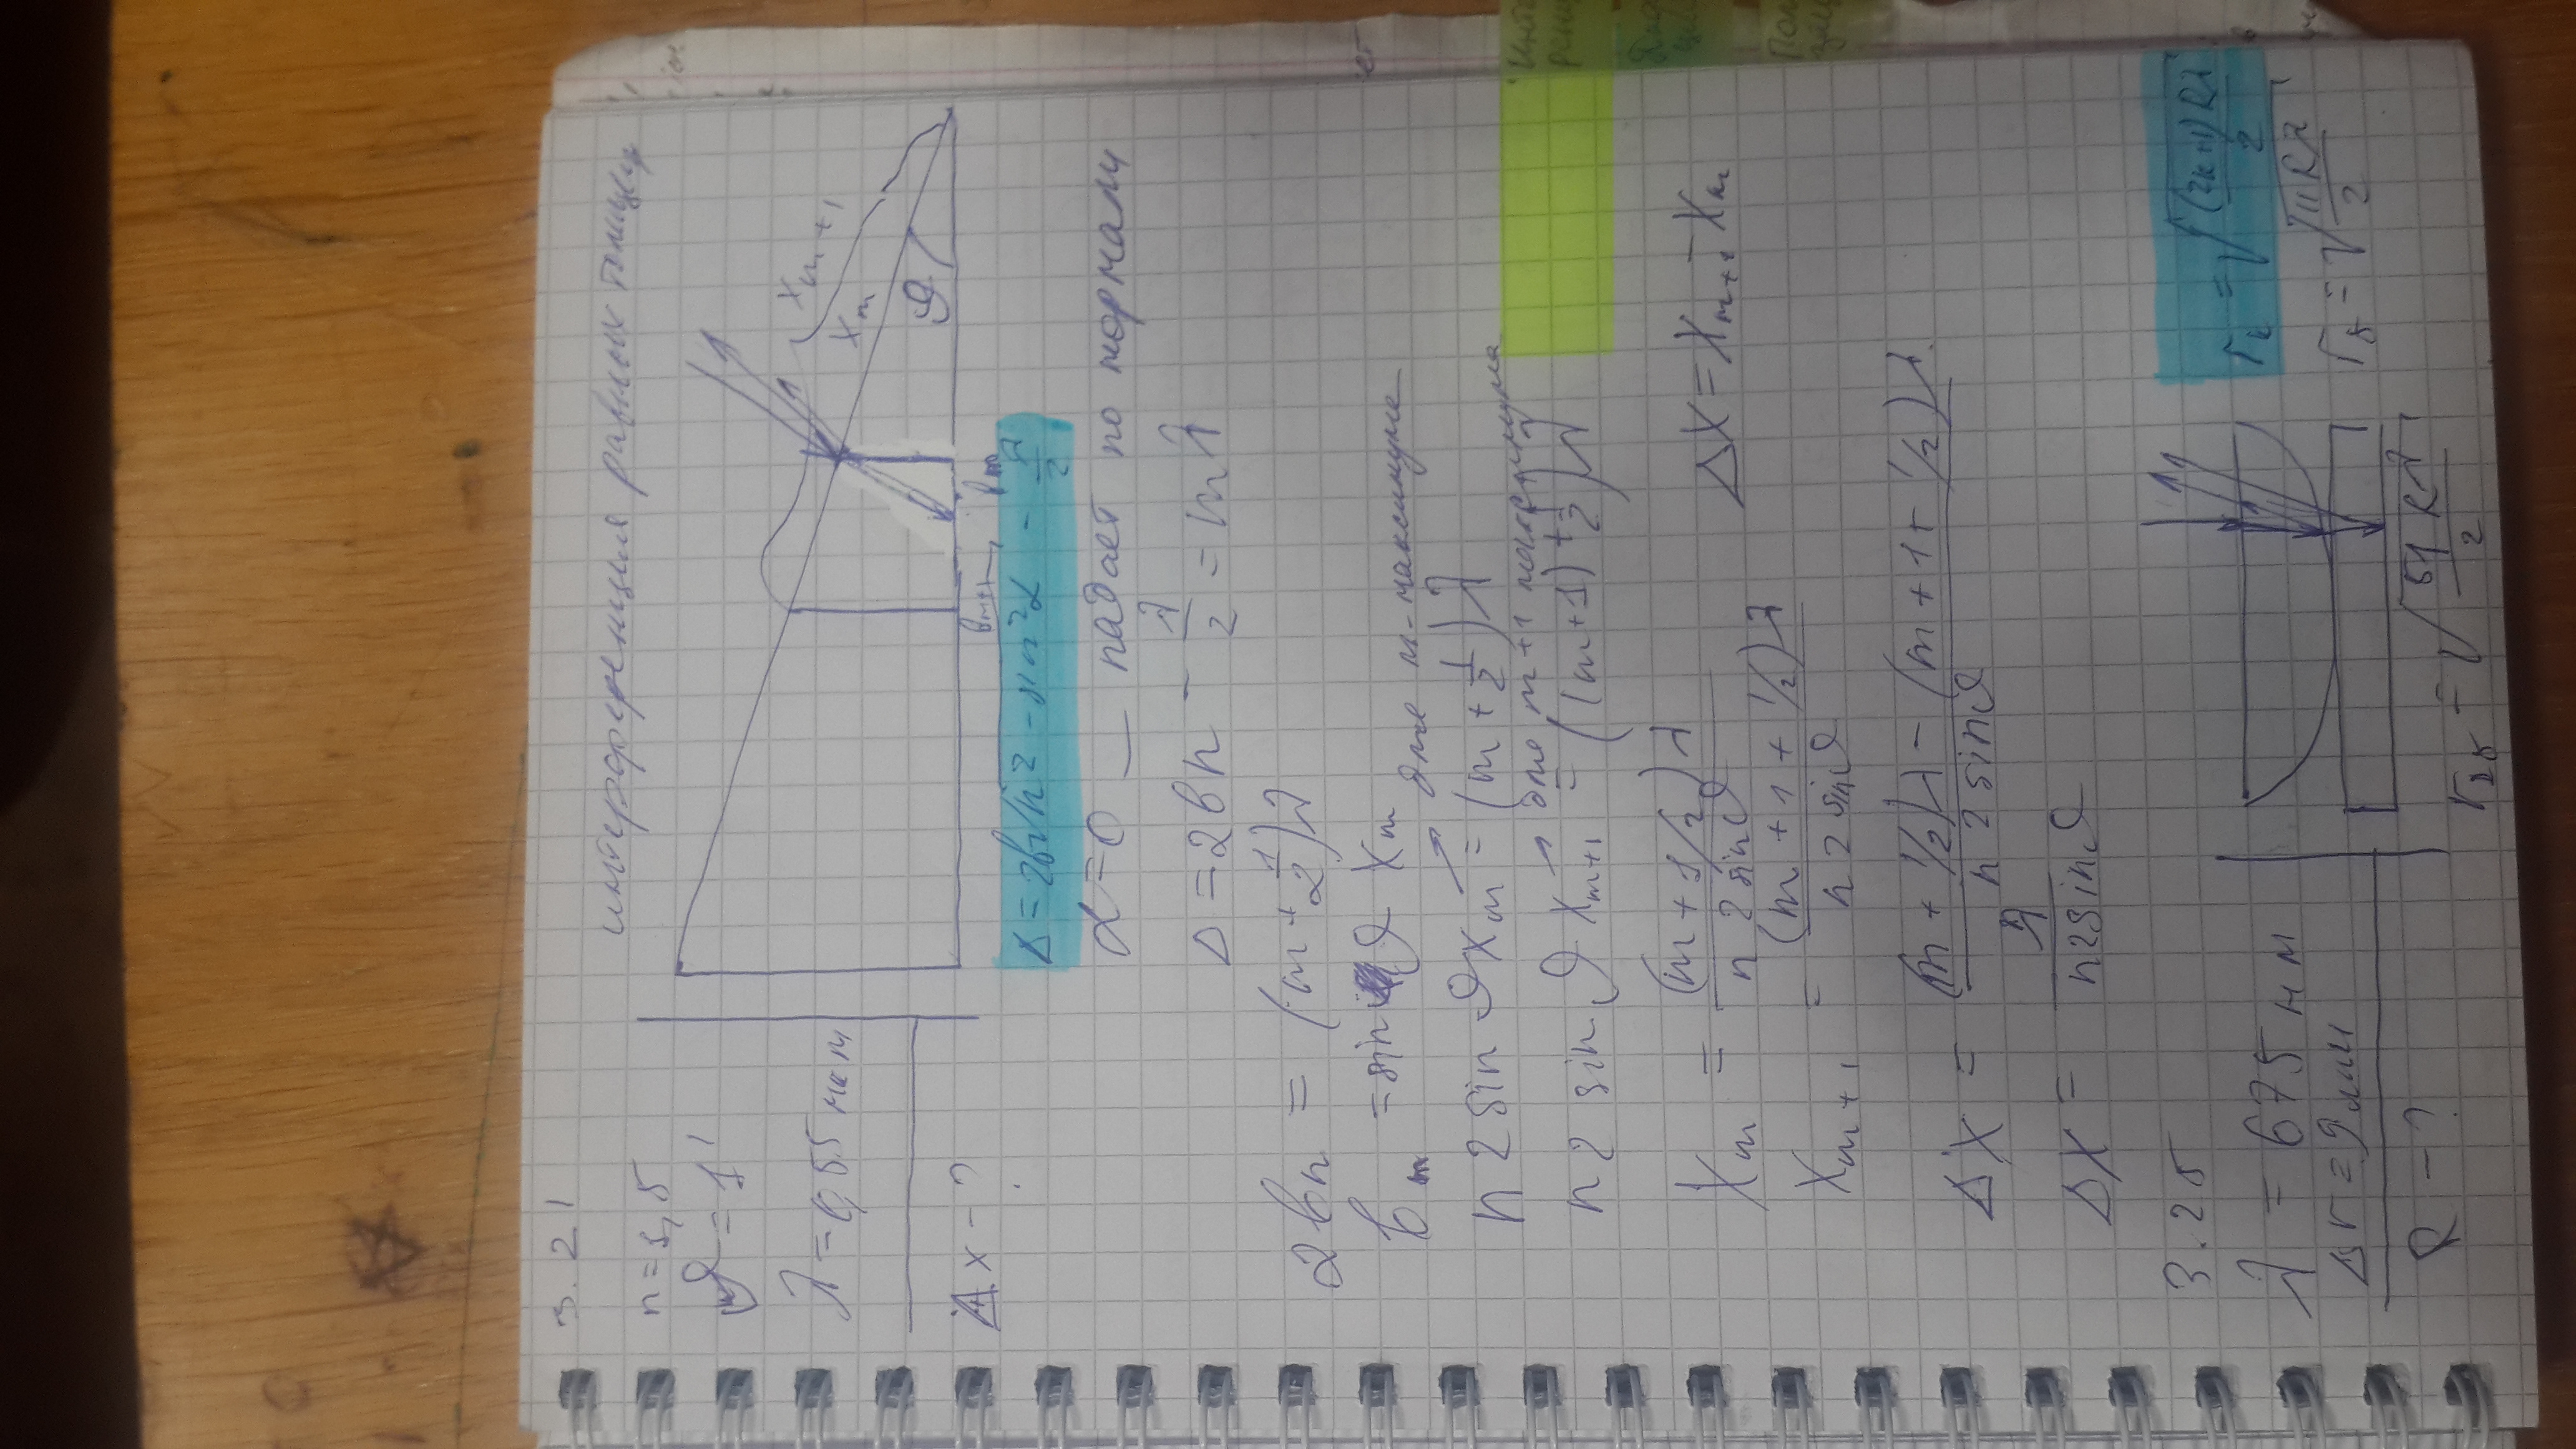 3.21
интерференция равных толщин
n = 1,5
ϑ = 1'
λ = 0,55 мкм
Δx - ?
x_{m+1}
x_m
ϑ
b_{m+1} b_m
Δ = 2b√(n² - sin²α) - λ/2
α = 0 — падает по нормали
Δ = 2bn - λ/2 = mλ
2bn = (m + 1/2)λ
b_m = sin ϑ x_m
для m-максимума
n 2 sin ϑ x_m = (m + 1/2)λ
для m+1 максимума
n 2 sin ϑ x_{m+1} = ((m+1) + 1/2)λ
x_m = (m + 1/2)λ / n 2 sin ϑ
Δx = x_{m+1} - x_m
x_{m+1} = (m + 1 + 1/2)λ / n 2 sin ϑ
Δx = (m + 1/2)λ - (m + 1 + 1/2)λ / n 2 sin ϑ
Δx = λ / n 2 sin ϑ
3.25
λ = 675 нм
Δr = 9 мм
R - ?
r_k = √((2k+1)Rλ / 2)
r_5 = √(11Rλ / 2)
r_25 = √(51 Rλ / 2)